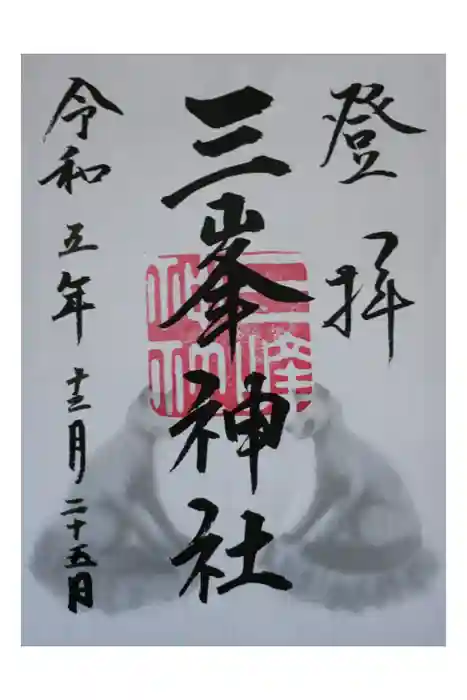 登拝
三峯神社
令和五年十二月二十五日
三峰
神社